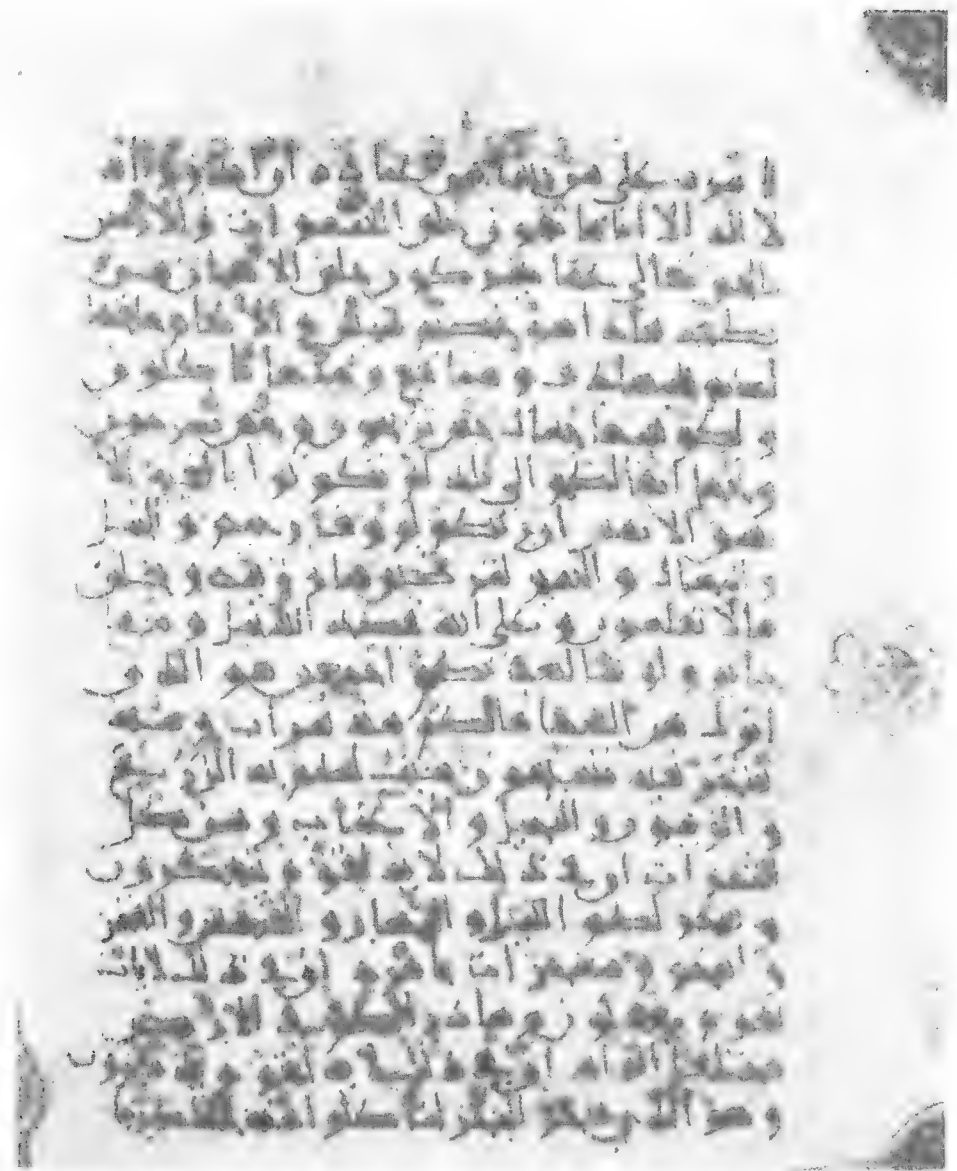 امره على من يشا من عباده ان انذروا انه
لا اله الا انا فاتقون خلق السموات والارض
بالحق تعالى عما يشركون خلق الانسان من
نطفة فاذا هو خصيم مبين والانعام خلقها
لكم فيها دف ومنافع ومنها تاكلون
ولكم فيها جمال حين تريحون وحين تسرحون
وتحمل اثقالكم الى بلد لم تكونوا بالغيه الا
بشق الانفس ان ربكم لروف رحيم والخيل
والبغال والحمير لتركبوها وزينة ويخلق
ما لا تعلمون وعلى الله قصد السبيل ومنها
جائر ولو شا لهديكم اجمعين هو الذي
انزل من السما ما لكم منه شراب ومنه
شجر فيه تسيمون ينبت لكم به الزرع
والزيتون والنخيل والاعناب ومن كل
الثمرات ان في ذلك لاية لقوم يتفكرون
وسخر لكم اليل والنهار والشمس والقمر
والنجوم مسخرات بامره ان في ذلك لايات
لقوم يعقلون وما ذرا لكم في الارض
مختلفا الوانه ان في ذلك لاية لقوم
وهو الذي سخر البحر لتاكلوا منه